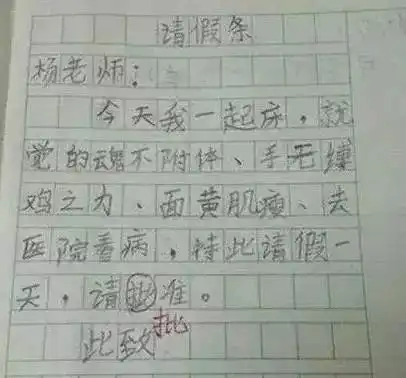 请假条
杨老师：
今天我一起床，就
觉的魂不附体、手无缚
鸡之力、面黄肌瘦、去
医院看病，特此请假一
天，请准。
批
此致